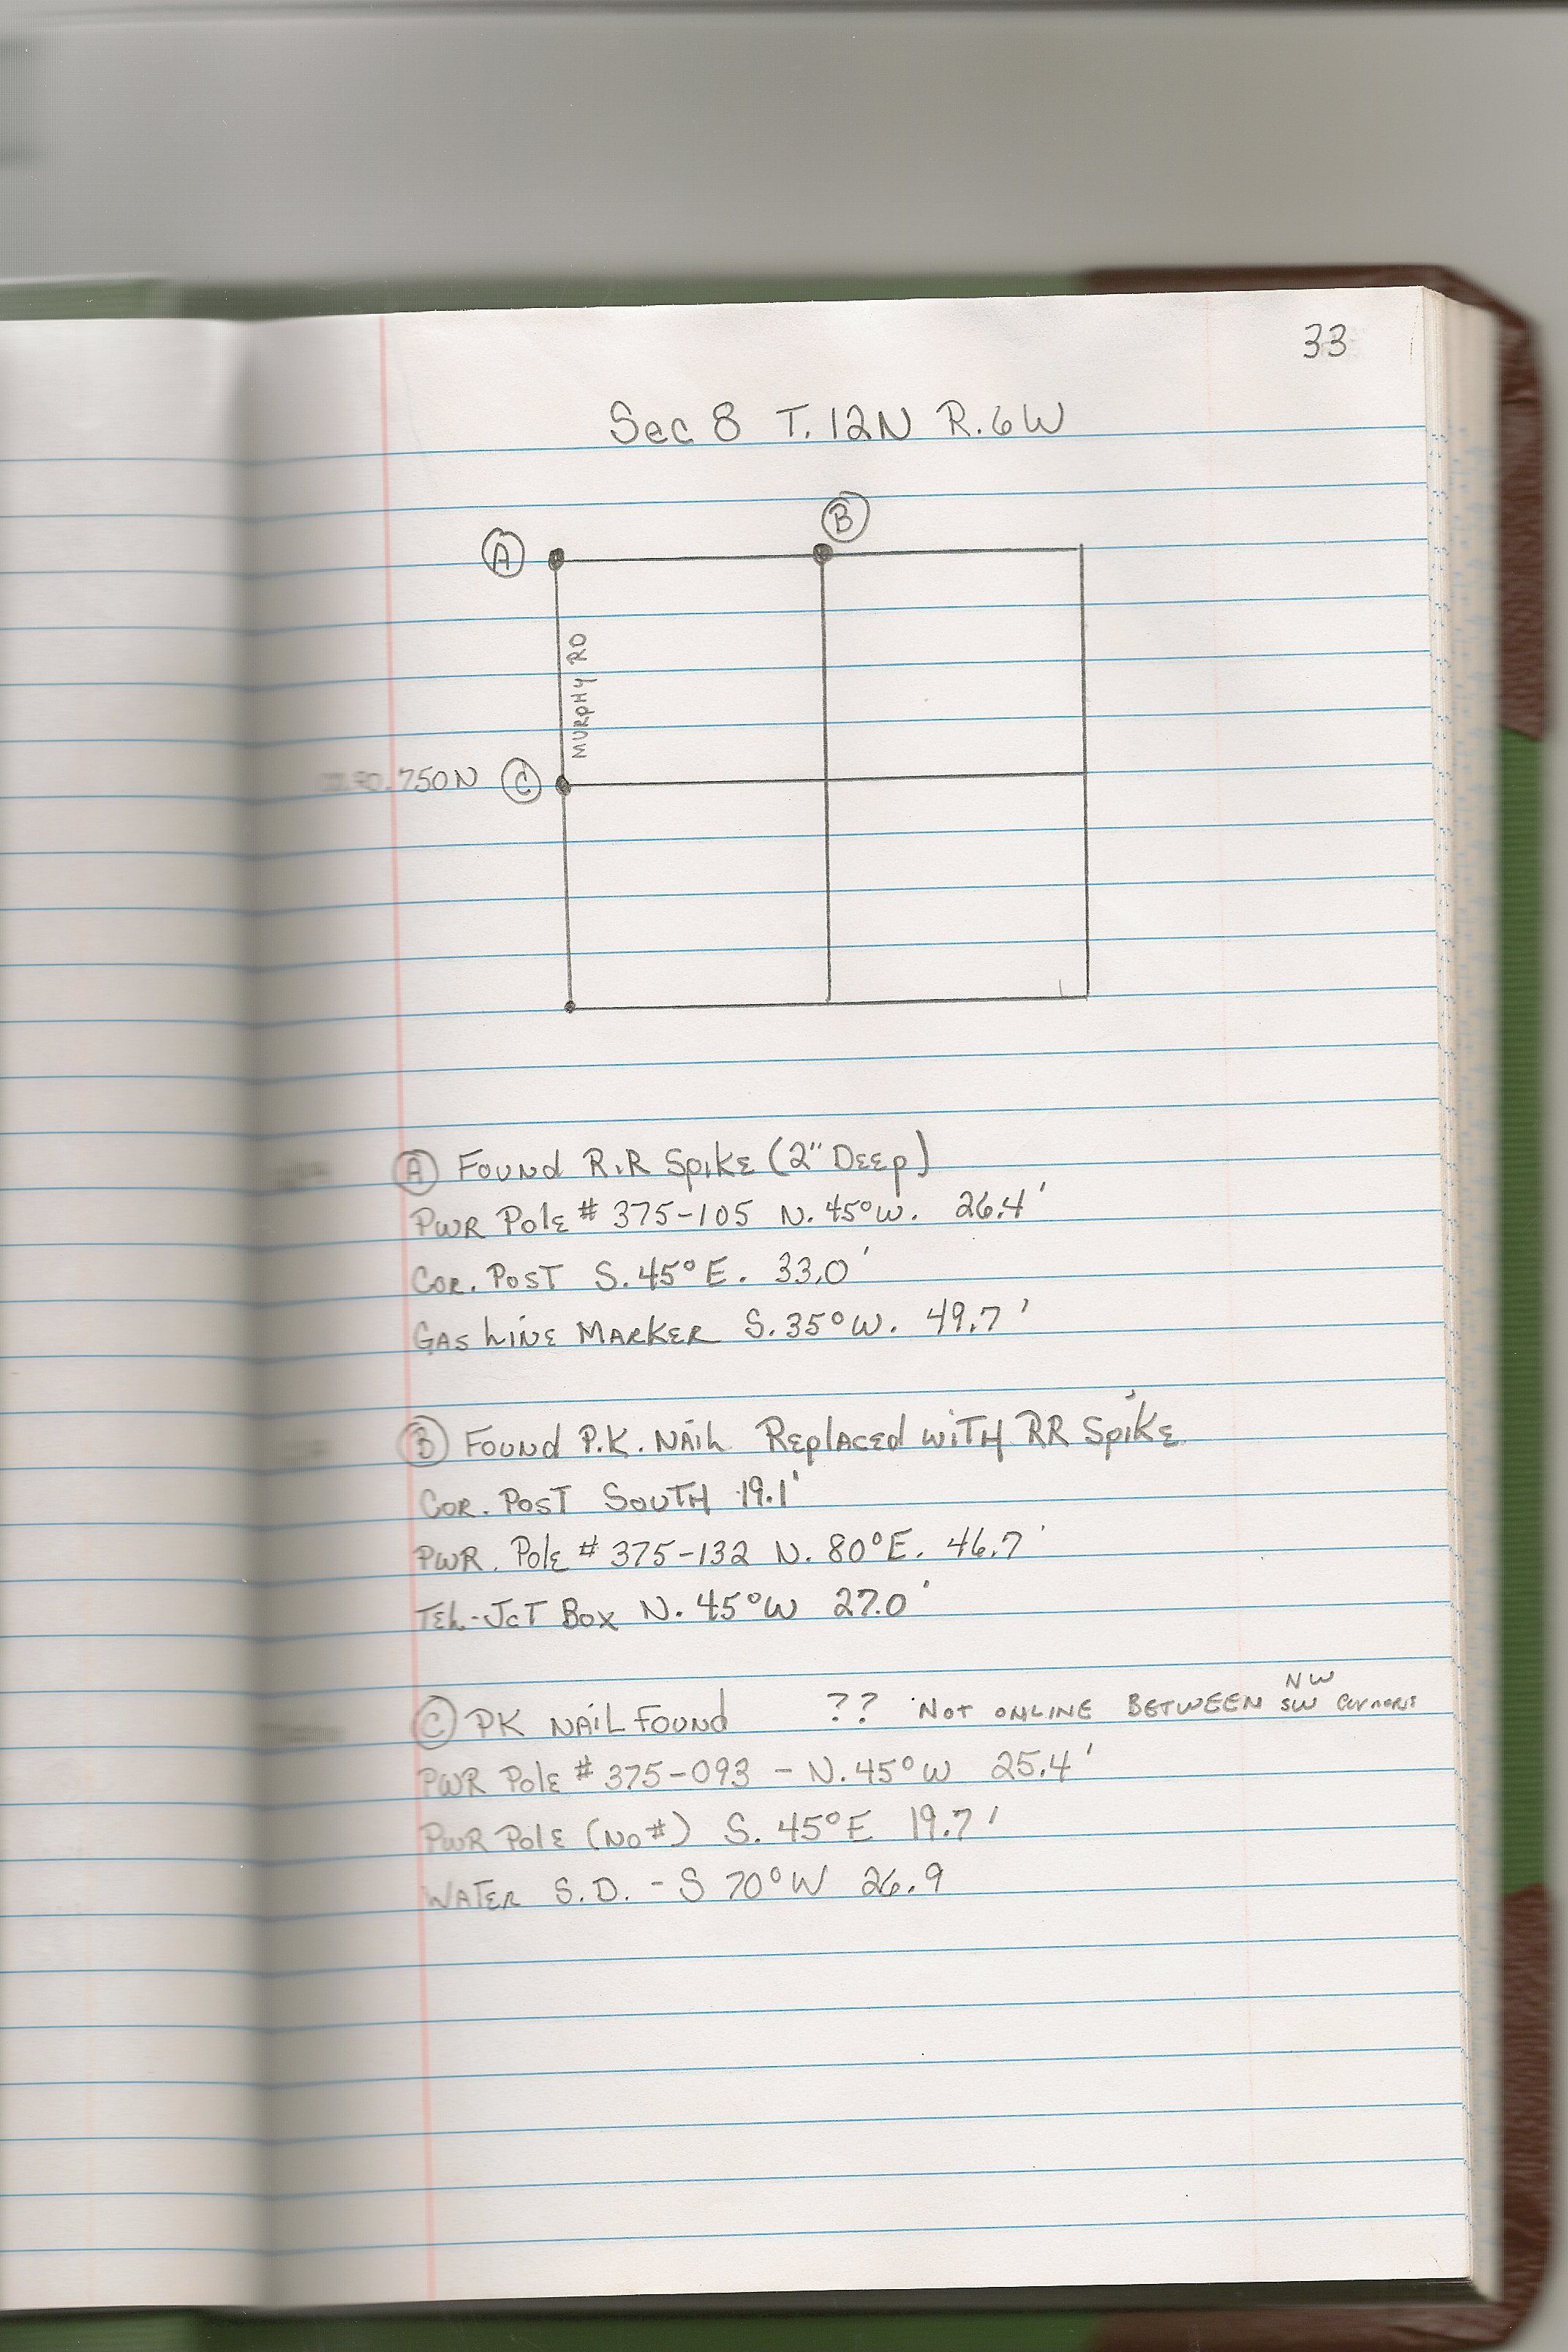 33
Sec 8 T. 12N R. 6W
B
A
MURPHY RD
.750N C
A Found R.R Spike (2" Deep)
PWR Pole # 375-105 N. 45° W. 26.4'
Cor. Post S. 45° E. 33.0'
Gas Line Marker S. 35° W. 49.7'
B Found P.K. Nail Replaced with RR Spike
Cor. Post South 19.1'
PWR. Pole # 375-132 N. 80° E. 46.7'
Tel.-Jct Box N. 45° W 27.0'
NW
C PK Nail Found ?? Not online Between SW Corners
PWR Pole # 375-093 - N. 45° W 25.4'
PWR Pole (No #) S. 45° E 19.7'
Water S.D. - S 70° W 26.9